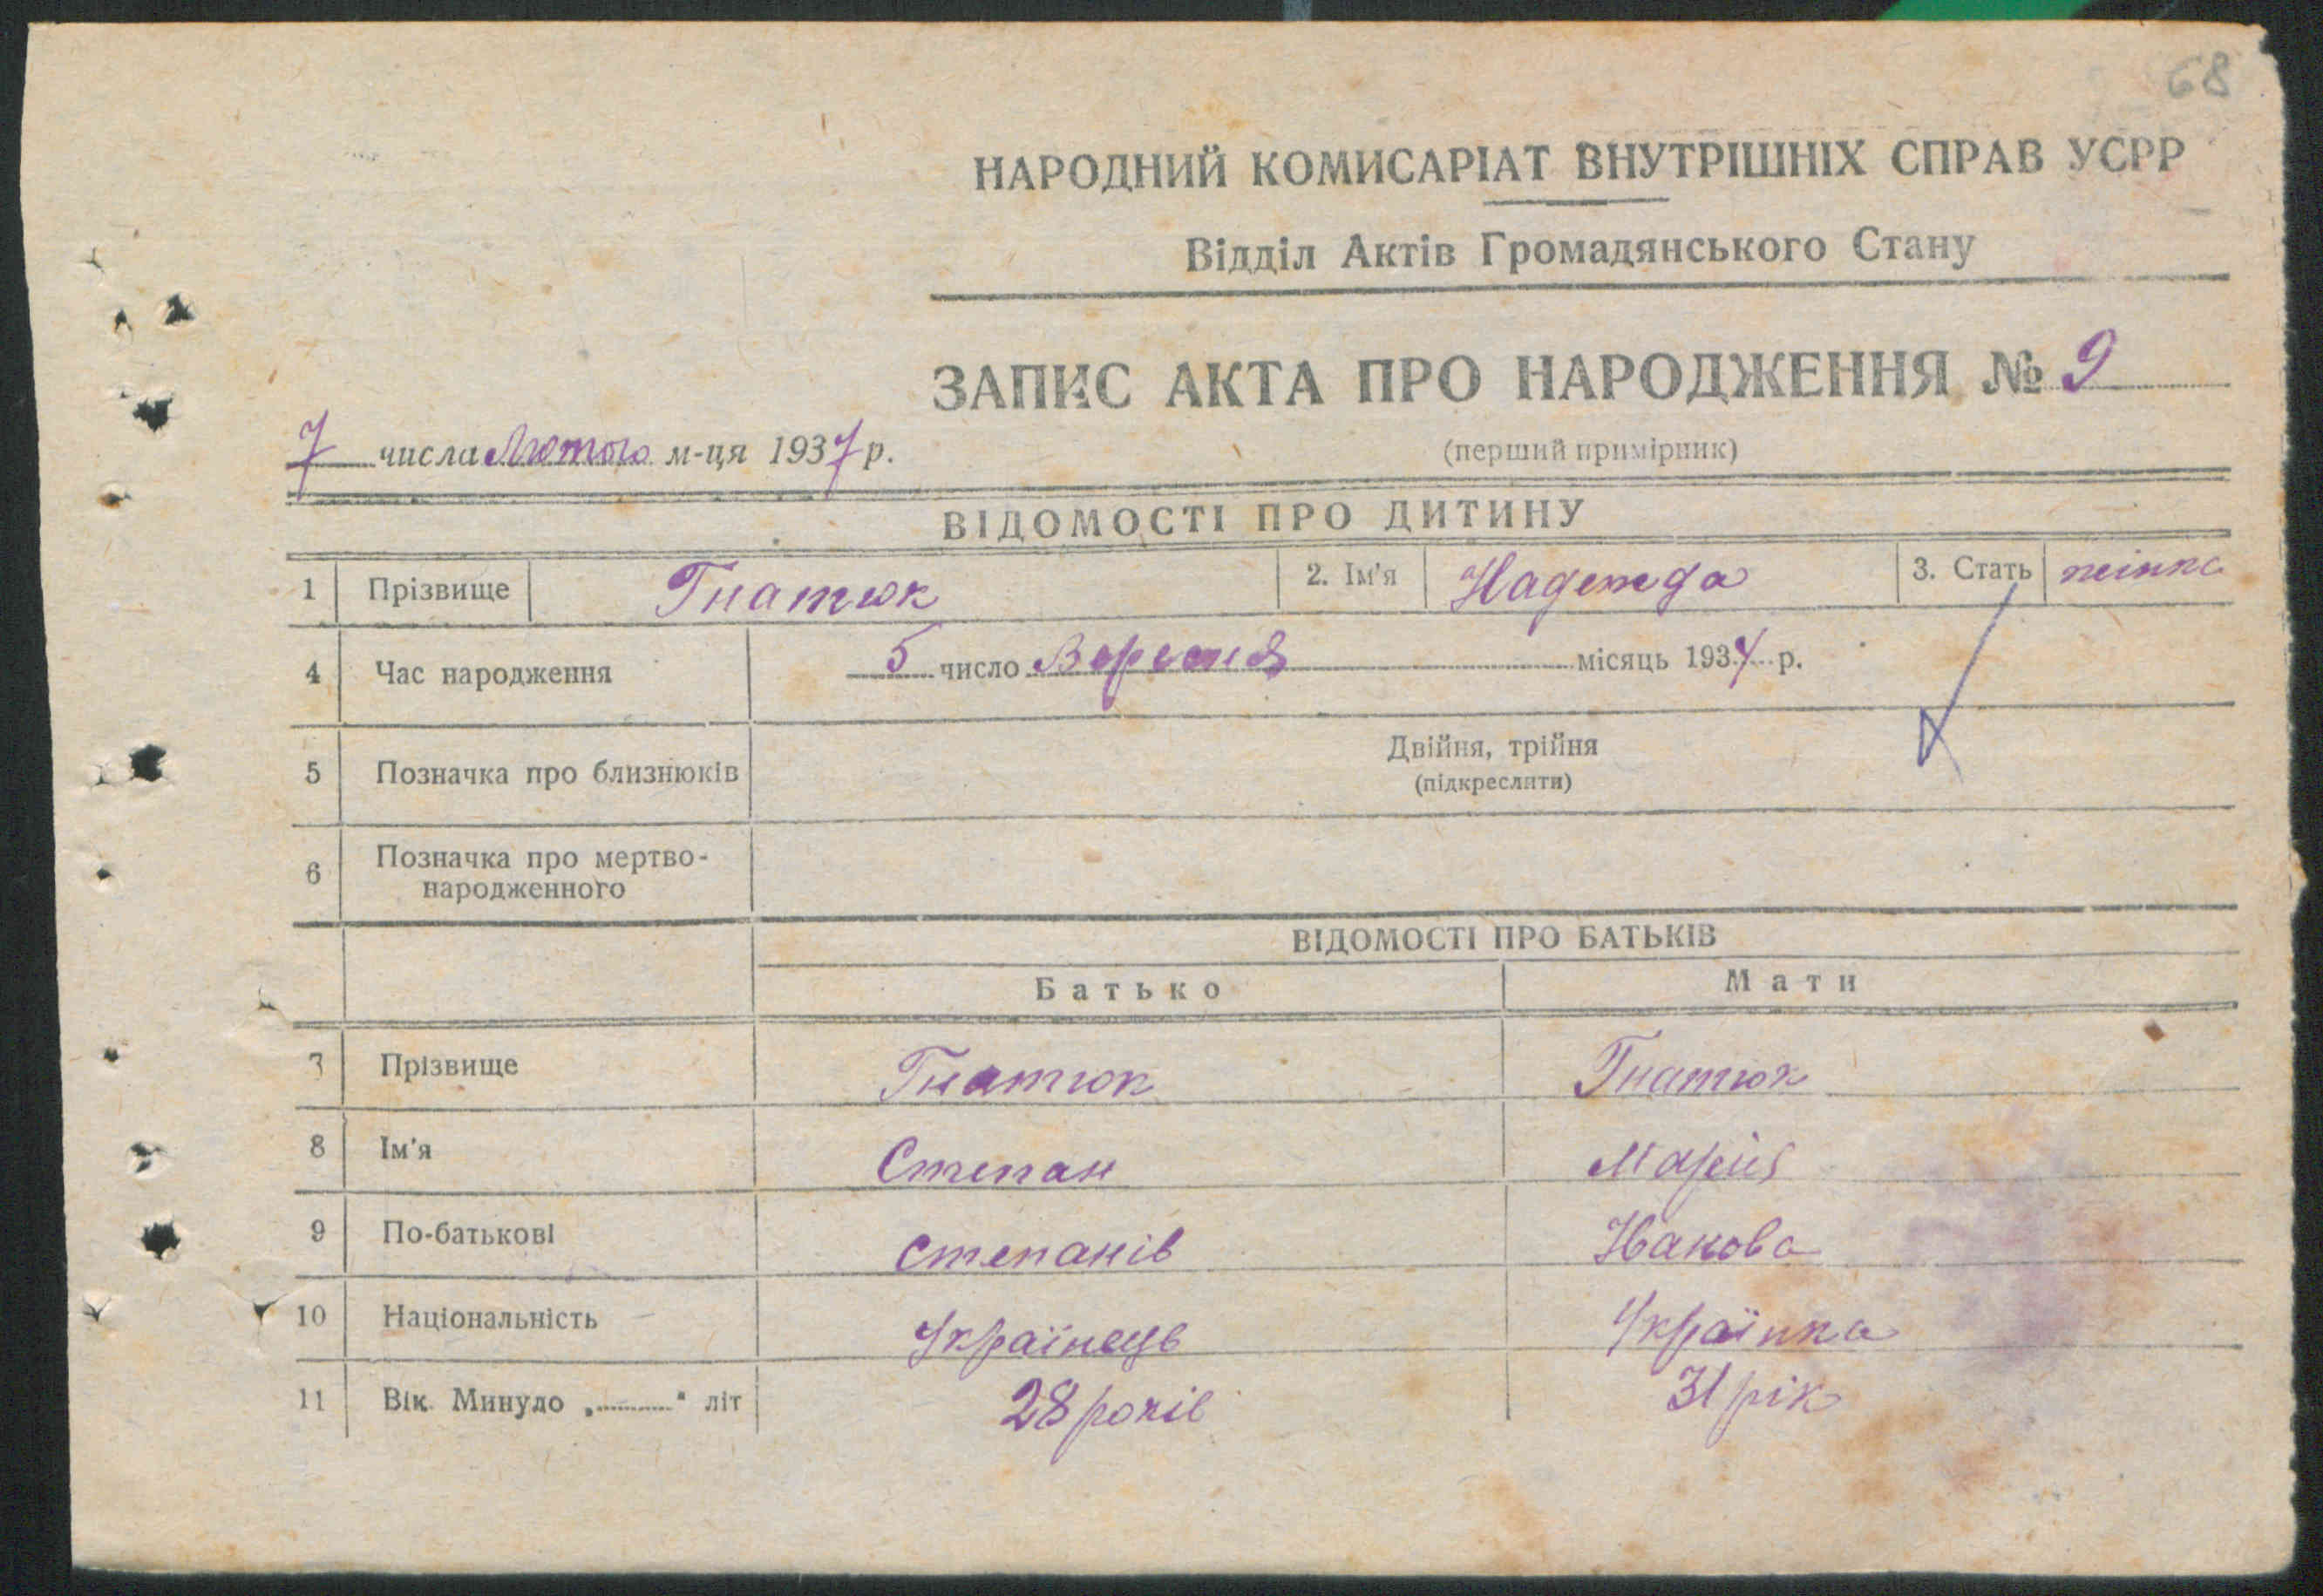 68
НАРОДНИЙ КОМИСАРІАТ ВНУТРІШНІХ СПРАВ УСРР
Відділ Актів Громадянського Стану
ЗАПИС АКТА ПРО НАРОДЖЕННЯ № 9
7 числа Лютого м-ця 1937 р.
(перший примірник)
ВІДОМОСТІ ПРО ДИТИНУ
1 Прізвище Гнатюк 2. Ім'я Надежда 3. Стать жінка
4 Час народження 5 число Вересня місяць 1934 р.
5 Позначка про близнюків Двійня, трійня
(підкреслити)
6 Позначка про мертво-
народженного
ВІДОМОСТІ ПРО БАТЬКІВ
Батько Мати
7 Прізвище Гнатюк Гнатюк
8 Ім'я Степан Марія
9 По-батькові Степанів
10 Національність Українець Українка
11 Вік. Минуло „ “ літ 28 років 31 рік